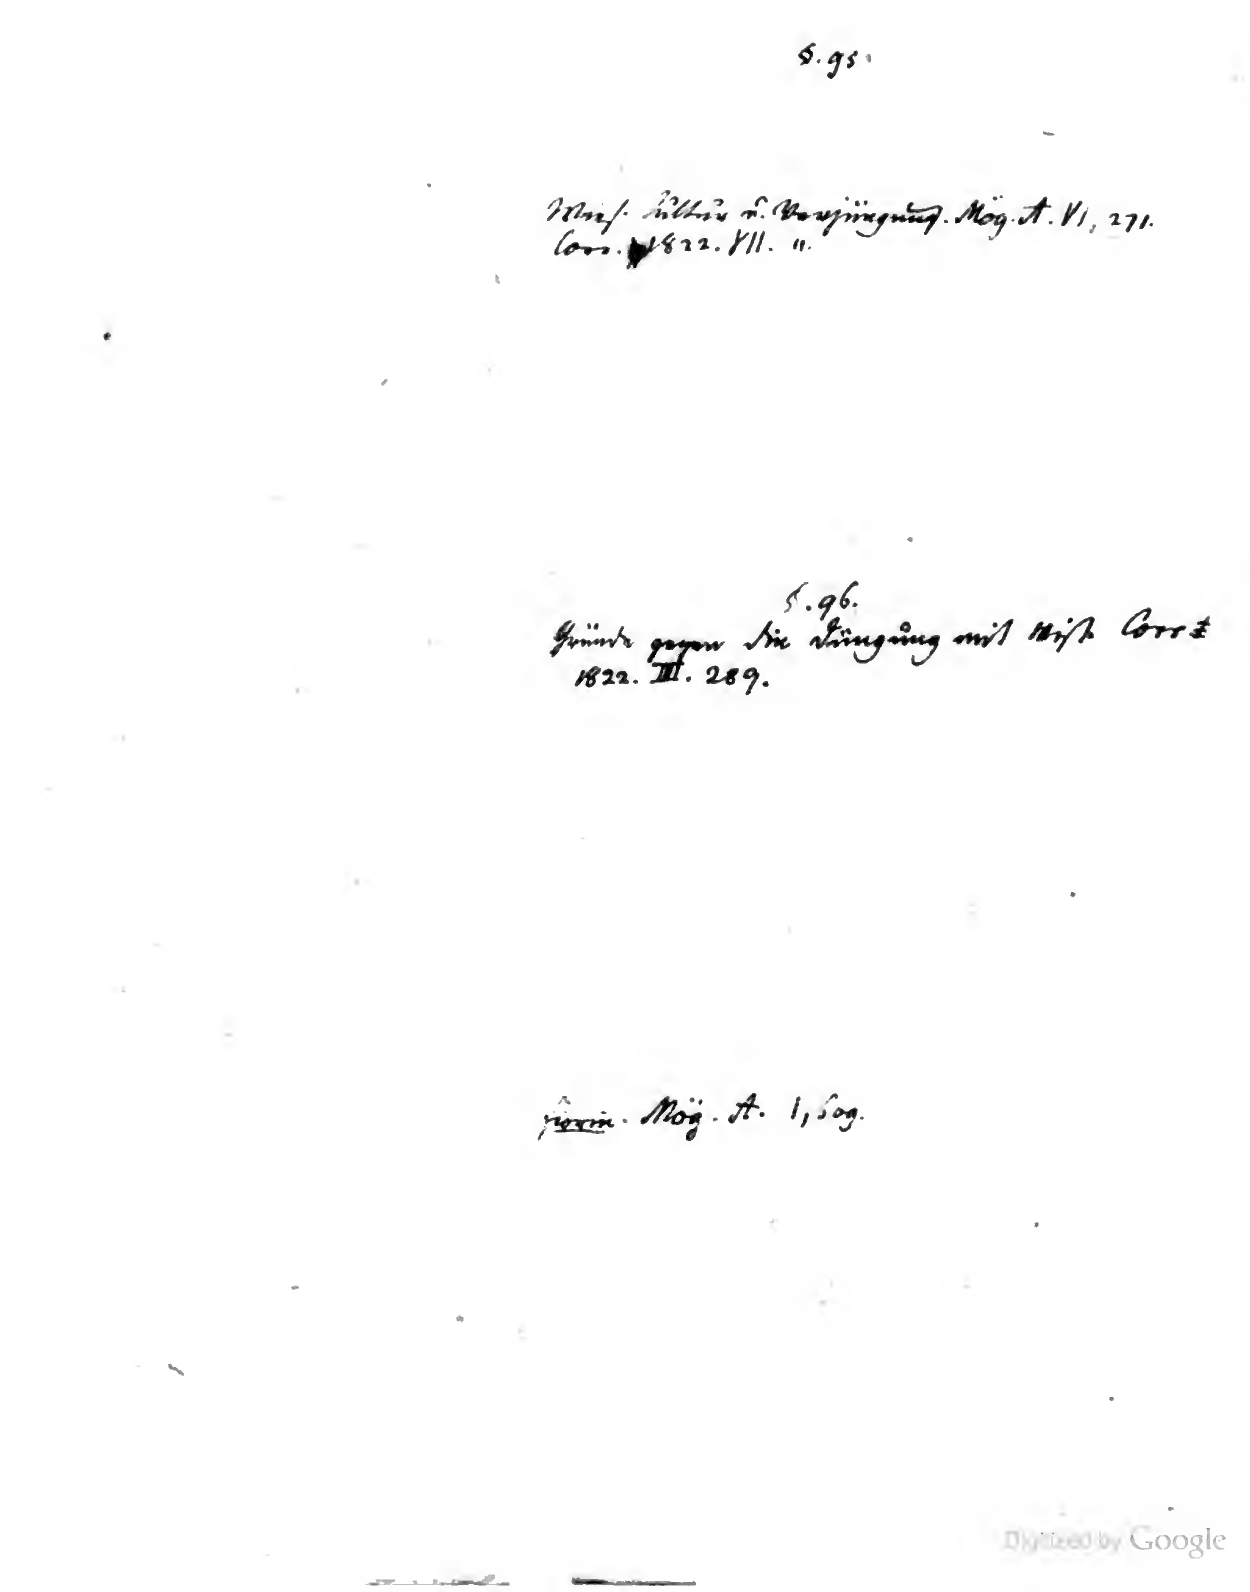 §. 95.
Wies. Cultur u. Verjüngung. Mög. A. VI, 271.
Corr. 1822. VII. ".
§. 96.
Gründe gegen die Düngung mit Mist. Corr
1822. III. 289.
Mög. A. I, 509.
Digitized by Google